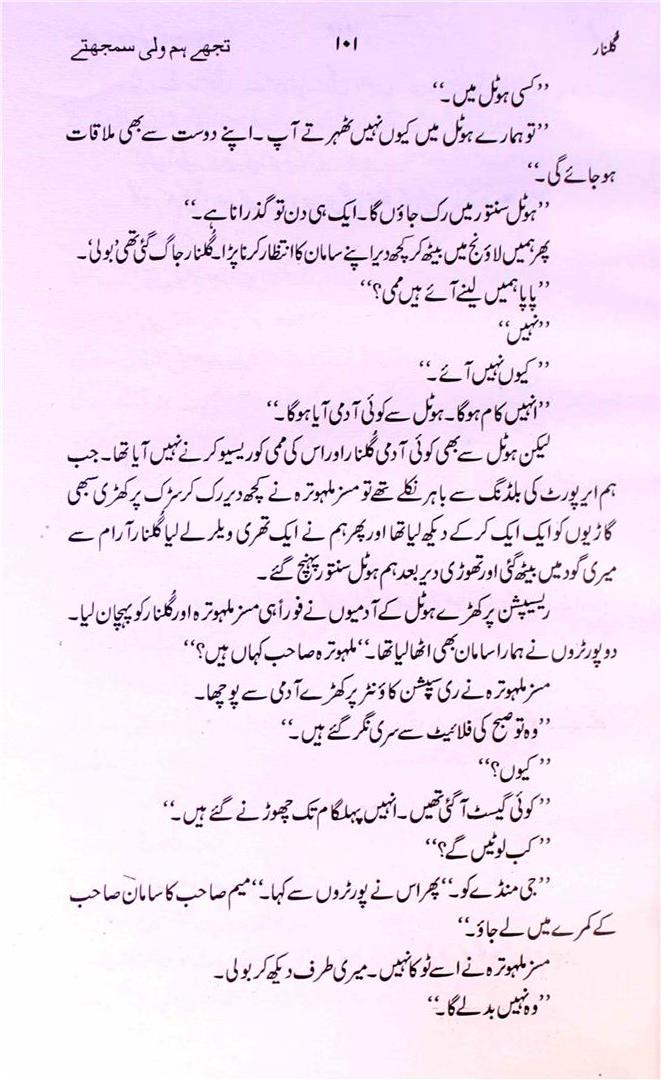 گلنار ۱۰۱ تجھے ہم ولی سمجھتے
’’کسی ہوٹل میں۔‘‘
’’تو ہمارے ہوٹل میں کیوں نہیں ٹھہرتے آپ ۔ اپنے دوست سے بھی ملاقات
ہو جائے گی۔‘‘
’’ہوٹل سنتور میں رک جاؤں گا۔ ایک ہی دن تو گذرانا ہے۔‘‘
پھر ہمیں لاؤنج میں بیٹھ کر کچھ دیر اپنے سامان کا انتظار کرنا پڑا۔ گلنار جاگ گئی تھی ’بولی‘۔
’’پاپا ہمیں لینے آئے ہیں ممی؟‘‘
’’نہیں‘‘
’’کیوں نہیں آئے۔‘‘
’’انہیں کام ہوگا۔ ہوٹل سے کوئی آدمی آیا ہوگا۔‘‘
لیکن ہوٹل سے بھی کوئی آدمی گلنار اور اس کی ممی کو ریسیو کرنے نہیں آیا تھا۔ جب
ہم ایرپورٹ کی بلڈنگ سے باہر نکلے تھے تو مسز ملہوترہ نے کچھ دیر رک کر سڑک پر کھڑی سبھی
گاڑیوں کو ایک ایک کر کے دیکھ لیا تھا اور پھر ہم نے ایک تھری ویلر لے لیا گلنار آرام سے
میری گود میں بیٹھ گئی اور تھوڑی دیر بعد ہم ہوٹل سنتور پہنچ گئے۔
ریسیپشن پر کھڑے ہوٹل کے آدمیوں نے فوراً ہی مسز ملہوترہ اور گلنار کو پہچان لیا۔
دو پورٹروں نے ہمارا سامان بھی اٹھا لیا تھا۔ ’’ملہوترہ صاحب کہاں ہیں؟‘‘
مسز ملہوترہ نے ری سپشن کاؤنٹر پر کھڑے آدمی سے پوچھا۔
’’وہ تو صبح کی فلائیٹ سے سری نگر گئے ہیں۔‘‘
’’کیوں؟‘‘
’’کوئی گیسٹ آ گئی تھیں۔ انہیں پہلگام تک چھوڑنے گئے ہیں۔‘‘
’’کب لوٹیں گے؟‘‘
’’جی منڈے کو۔‘‘ پھر اس نے پورٹروں سے کہا۔ ’’میم صاحب کا سامان صاحب
کے کمرے میں لے جاؤ۔‘‘
مسز ملہوترہ نے اسے ٹوکا نہیں۔ میری طرف دیکھ کر بولی۔
’’وہ نہیں بدلے گا۔‘‘